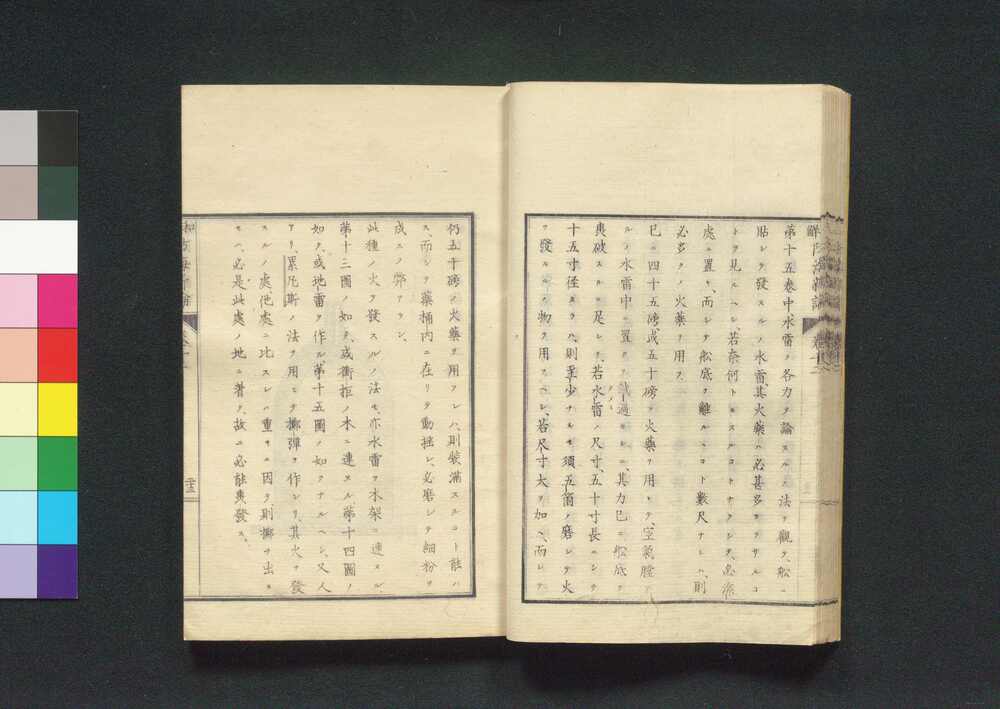 第十五巻中水雷ノ各力ヲ論スルノ法ヲ觀ヲ、舩ニ
貼レヲ發スルノ水雷其火藥ハ必甚多カラサルコ
トヲ見ルヘシ、若奈何トモスルコトナクシテ、
處ニ置ヲ、而シテ舩底ヲ離ルヽコト數尺ナレハ、則
必多クノ火藥ヲ用ス
已ニ四十五磅或五十磅ノ火藥ヲ用ヒテ、空氣膛ア
ルノ水雷中ニ置ク過セシニ、其力已ニ舩底ヲ
轟破スルニ足レリ、若水雷ノ尺寸、五十寸長ニシテ
十五寸径ナラハ、則至少ナルモ須五箇ノ磨シテ火
ヲ發スルノ物ヲ用スヘシ、若尺寸大ヲ加ヘ、而シテ
仍五十磅ノ火藥ヲ用フレハ、則裝滿スルコト能ハ
ス、而シテ藥桶内ニ在リテ動揺シ、必磨シテ細粉ヲ
成スノ弊アラン、
此種ノ火ヲ發スルノ法モ、亦水雷ヲ木架ニ連スル、
第十三圖ノ如ク、或衝拒ノ木ニ連スル第十四圖ノ
如ク、或地雷ヲ作ル、第十五圖ノ如クナルヘシ、又人
アリ、累凡斯ノ法ヲ用ヒテ擲彈ヲ作レリ、其火ヲ發
スルノ處、他處ニ比スレハ重キニ因テ、則擲ケ出セ
ハ、必是此處ノ地ニ著ク、故ニ必能轟發ス、